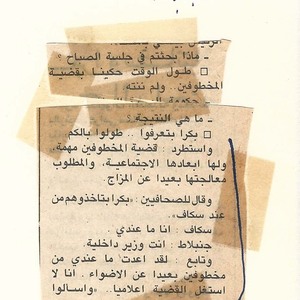 ـ ماذا بحثتم في جلسة الصباح ؟
□ طـول الوقت حكينـا بقضيـة
المخطوفين . ولم تنته
ـ ما هي النتيجة ؟
□ بكرا بتعرفوا .. طولوا بالكم
واستطرد : قضية المخطوفين مهمة،
ولها ابعادها الاجتماعيـة، والمطلوب
معالجتها بعيدا عن المزاج.
وقال للصحافيين : «بكرا بتاخذوهم من
عند سكاف».
سكاف : انا ما عندي .
جنبلاط : انت وزير داخلية.
وتابع : لقد اعدت ما عندي من
مخطوفين بعيدا عن الاضواء . انا لا
استغل القضية اعلاميا.. «واسالوا